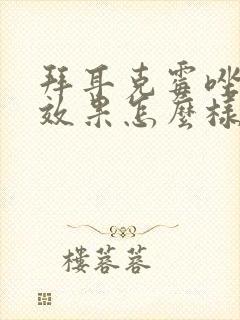 拜耳克霉唑
效果怎麼樣
樓蓉蓉